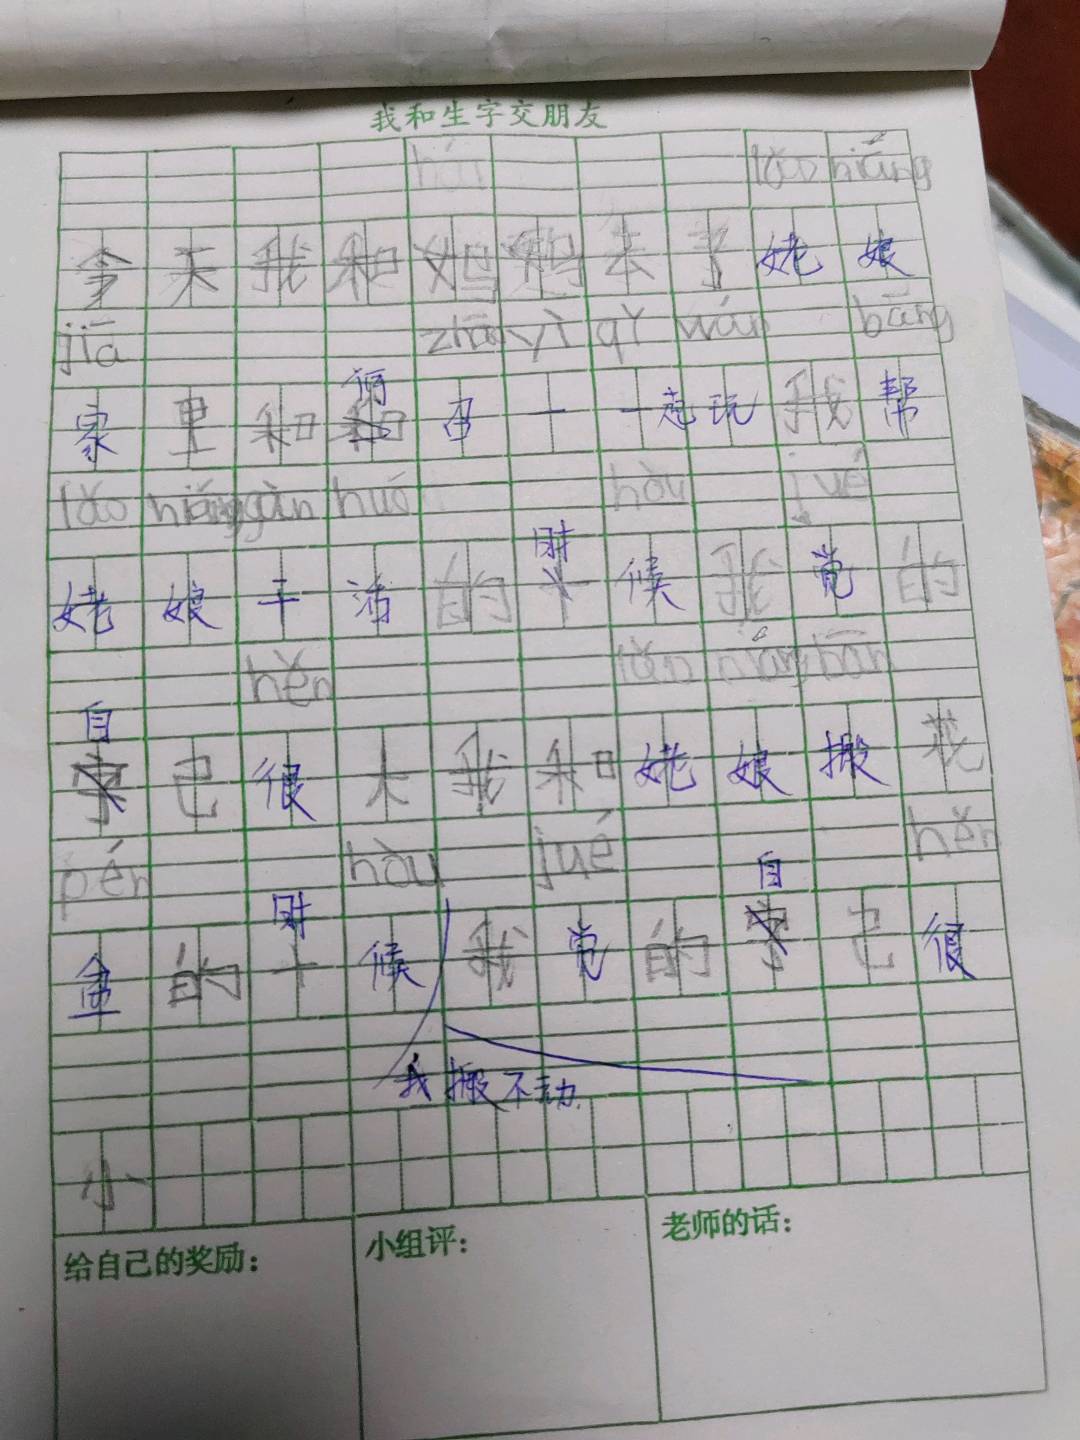 我和生字交朋友
hái lǎo niáng
今天我和妈妈去了姥娘
jiā zhǎo yì qǐ wán bāng
家里和
一一起玩我帮
lǎo niáng gàn huó hòu jué
姥娘干活的时候我觉的
hěn lǎo niáng bān
自己很大我和姥娘搬花
pén hòu jué hěn
盆的时候我觉的自己很
我搬不动.
小
给自己的奖励：
小组评：
老师的话：